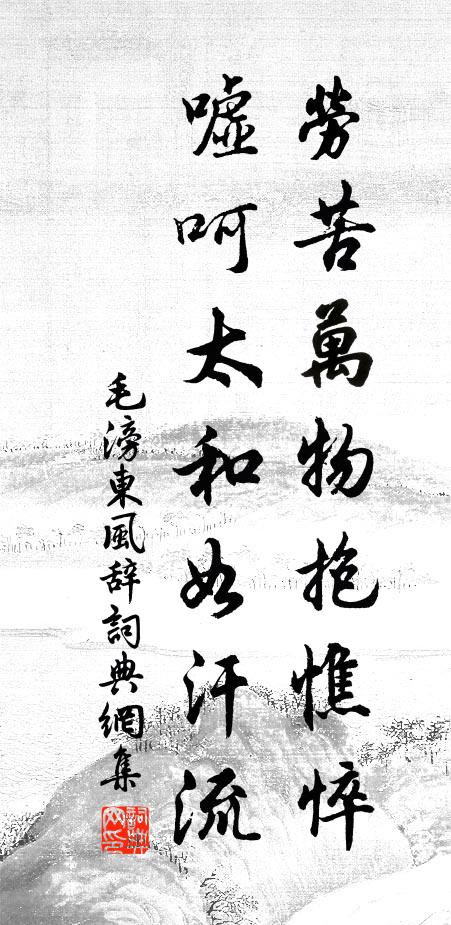 勞苦萬物抱憔悴
噓呵太和如汗流
毛滂東風辞詞典網集